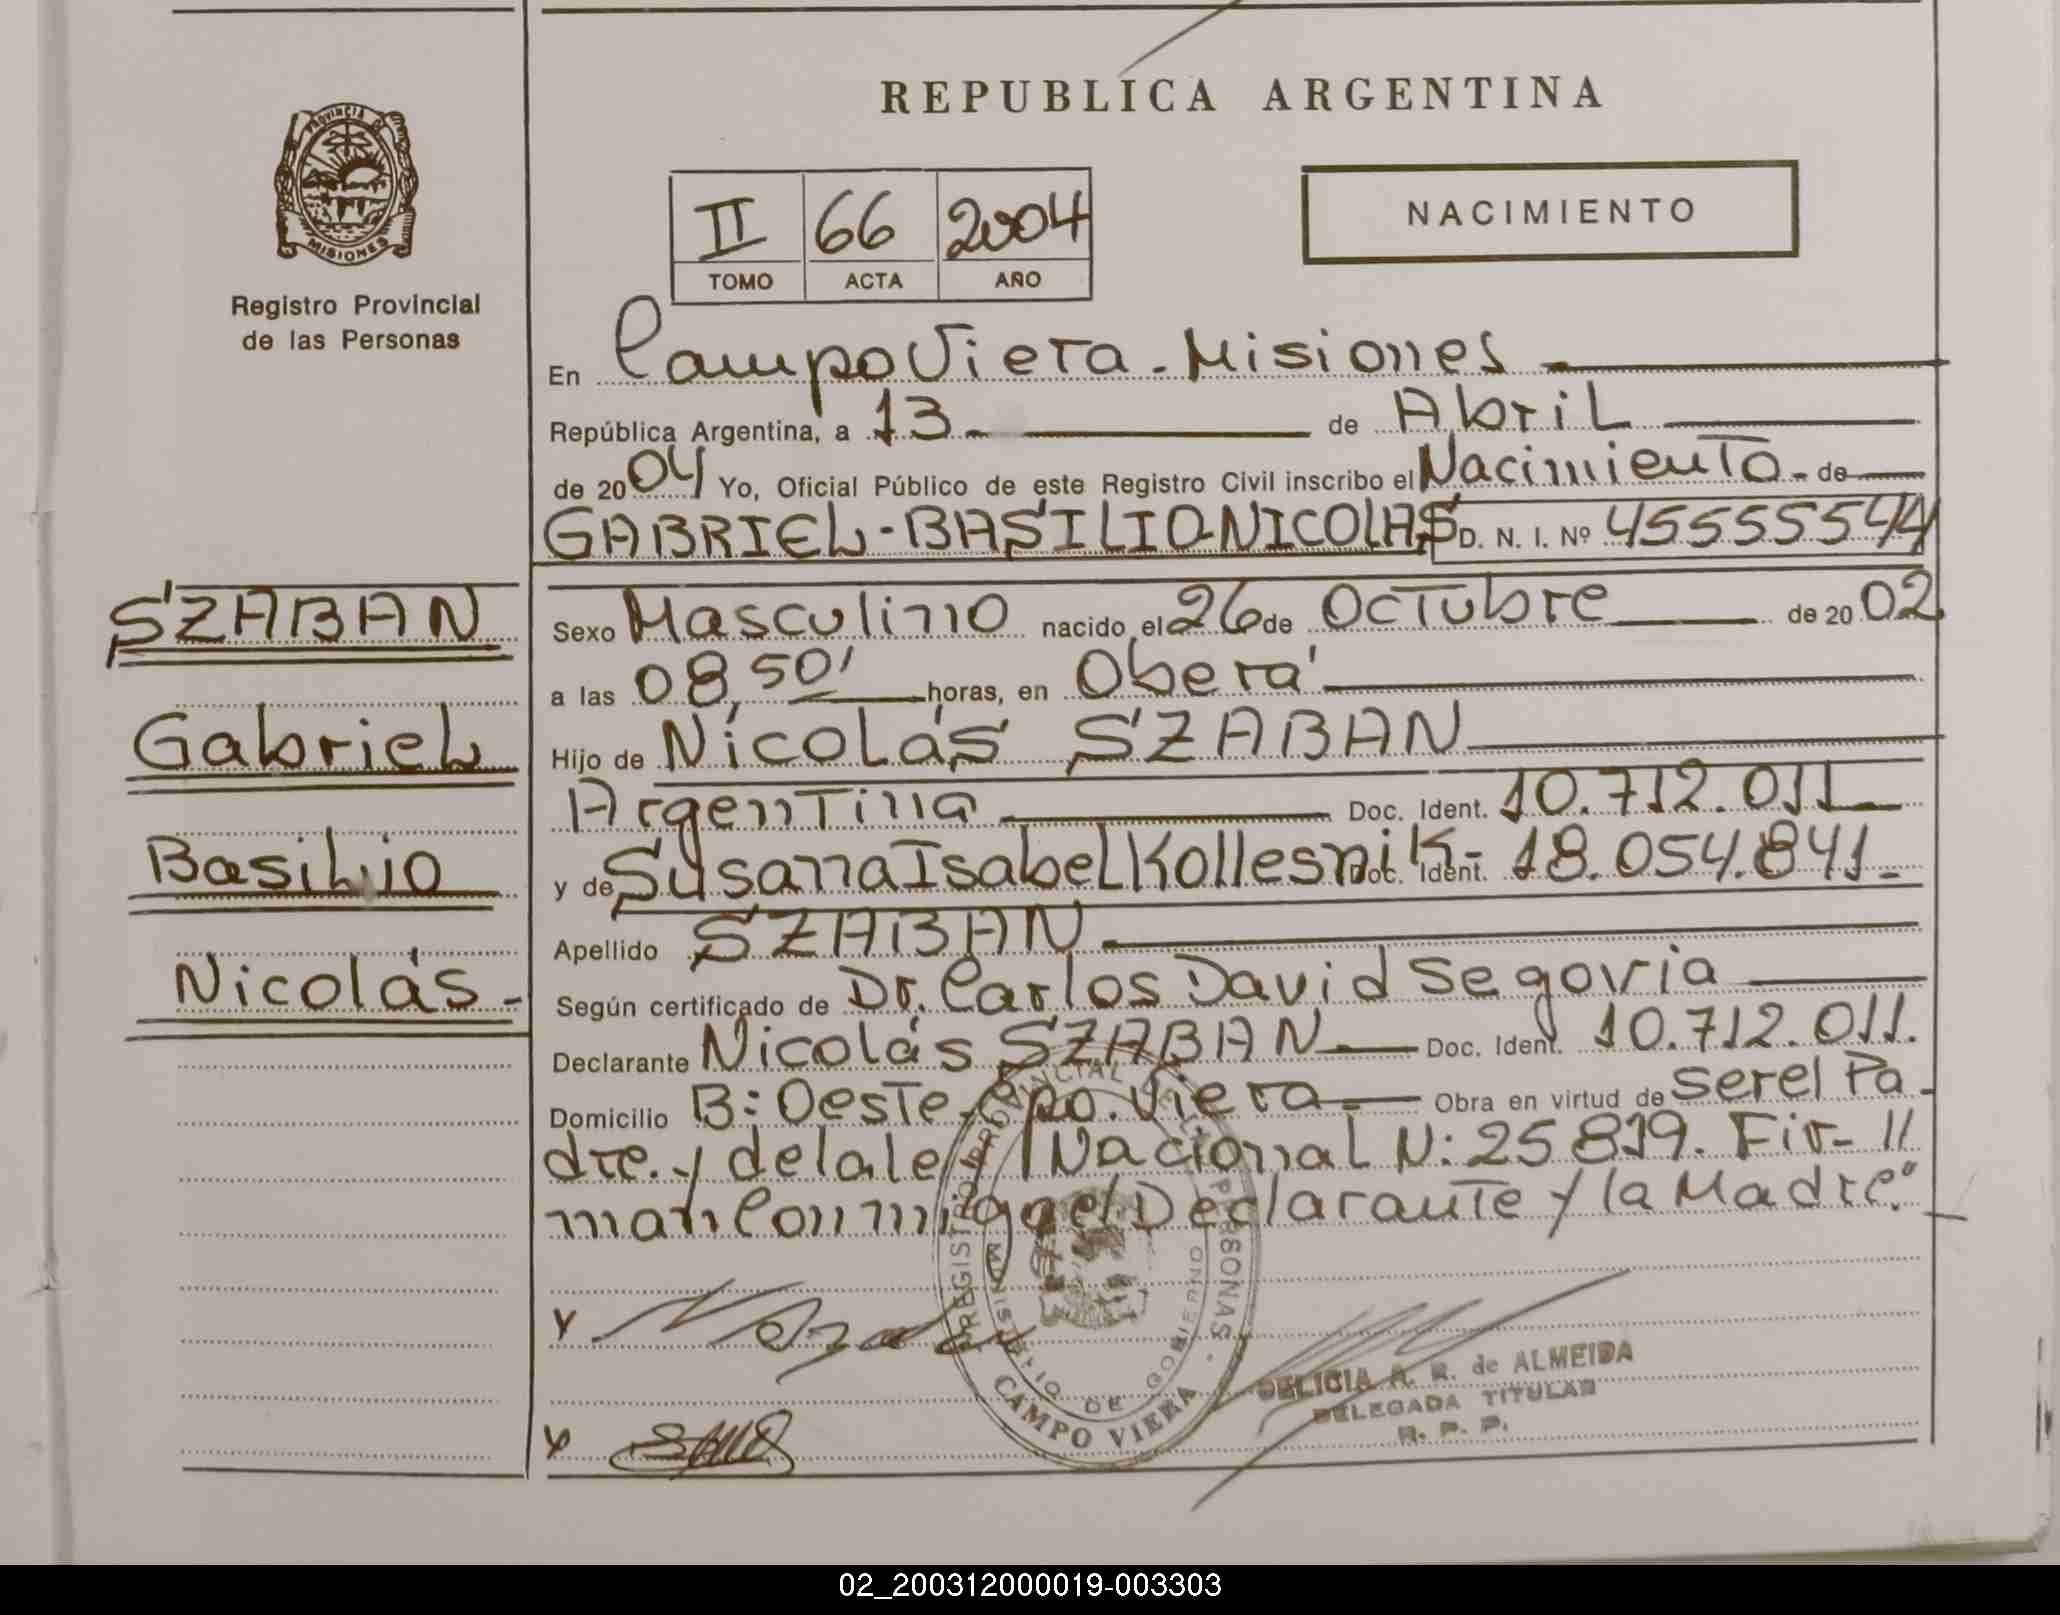 REPUBLICA ARGENTINA
PROVINCIA DE MISIONES
Registro Provincial
de las Personas
II 66 2004
TOMO ACTA AÑO
NACIMIENTO
En Campo Viera - Misiones
República Argentina, a 13 de Abril
de 2004 Yo, Oficial Público de este Registro Civil inscribo el Nacimiento - de
GABRIEL - BASILIO - NICOLAS D. N. I. Nº 45555544
SZABAN
Gabriel
Basilio
Nicolás -
Sexo Masculino nacido el 26 de Octubre de 2002
a las 08,50' horas, en Oberá
Hijo de Nicolás SZABAN
Argentina Doc. Ident. 10.712.011
y de Susana Isabel Kollesnik - Doc. Ident. 18.054.841.
Apellido SZABAN
Según certificado de Dr. Carlos David Segovia
Declarante Nicolás SZABAN Doc. Ident. 10.712.011.
Domicilio B: Oeste. Cpo. Viera Obra en virtud de ser el Pa-
dre. y de la ley Nacional N: 25819. Fir- //
man Conmigo el Declarante y la Madre."
REGISTRO PROVINCIAL DE LAS PERSONAS -
MINISTERIO DE GOBIERNO
CAMPO VIERA
DELICIA A. R. de ALMEIDA
DELEGADA TITULAR
R. P. P.
02_200312000019-003303